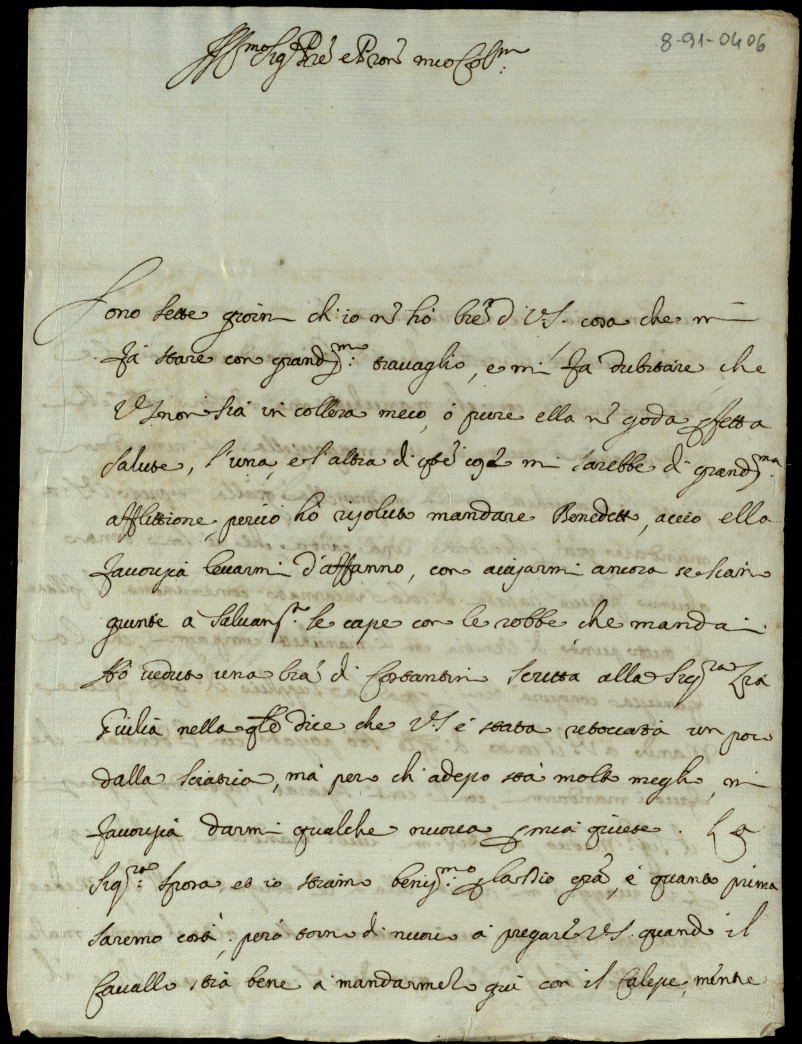 8-91-0406
Ill.mo Sig.r Pre e Pron mio Col.mo
Sono sette giorni ch'io nõ hò lre d V.S. cosa che mi
fà stare con grandis.mo travaglio, e mi fà dubitare che
V.S. non sia in collera meco, ò pure ella nõ goda pfetta
salute, l'una, e l'altra di qste cose mi sarebbe di grandis.ma
afflittione, perciò hò risoluto mandare Benedetto, acciò ella
favorisca levarmi d'affanno, con avisarmi ancora se sian
giunte à le cape con le robbe che mandai.
Hò veduto una lra di Costantin scritta alla Sig.ra Zia
Giulia nella qle dice che V.S. è stata retoccata un poco
dalla sciatica, mà però ch'adesso stà molto meglio, mi
favorisca darmi qualche nuova p mia quiete. La
Sig.ra Spora, et io stiamo benis.mo p la Dio gra, è quanto prima
saremo costì, però torno di nuovo à pregar V.S. quando il
Cavallo stia bene à mandarmelo quì con il Calepe, mentre